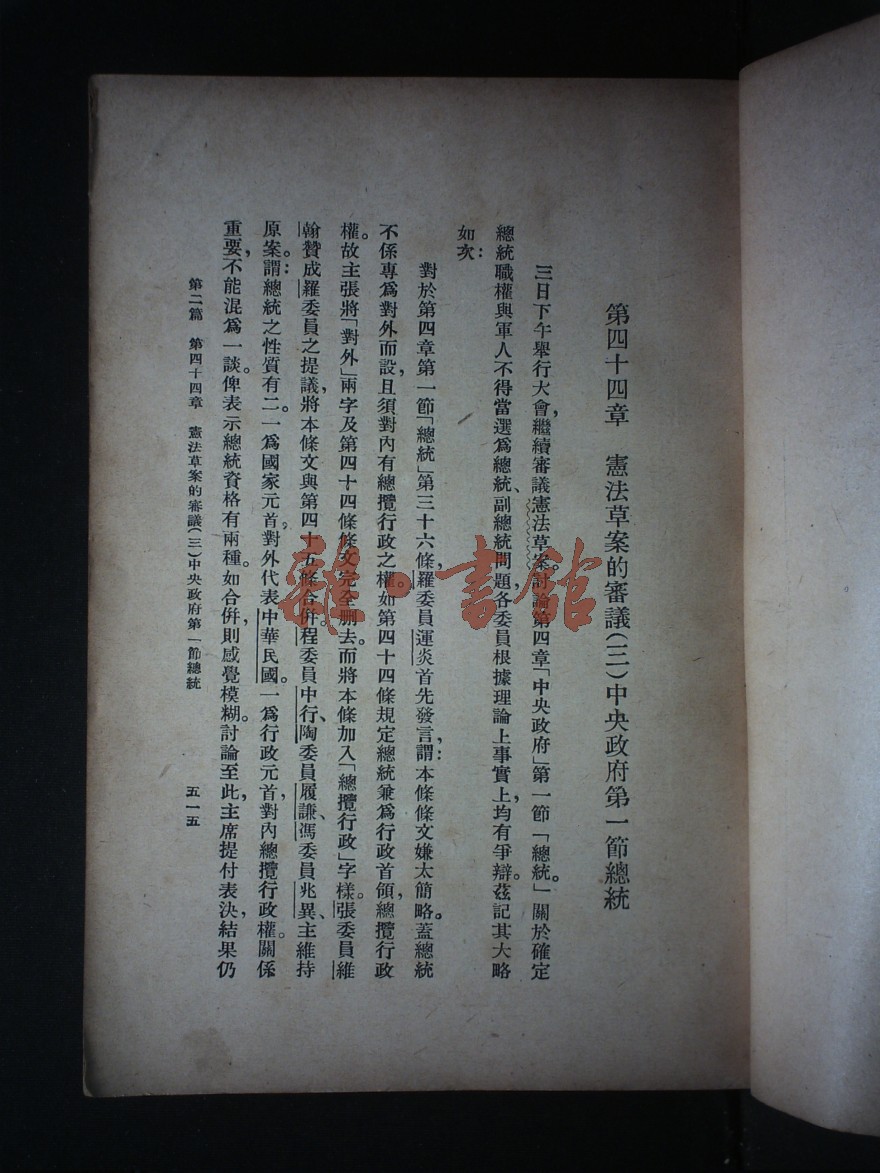 第四十四章　憲法草案的審議(三)中央政府第一節總統
三日下午舉行大會，繼續審議憲法草案。討論第四章「中央政府」第一節「總統。」關於確定
總統職權與軍人不得當選爲總統、副總統問題，各委員根據理論上事實上，均有爭辯。茲記其大略
如次：
對於第四章第一節「總統」第三十六條，羅委員運炎首先發言，謂：本條條文嫌太簡略。蓋總統
不係專爲對外而設，且須對內有總攬行政之權。如第四十四條規定總統兼爲行政首領，總攬行政
權。故主張將「對外」兩字及第四十四條條文完全删去。而將本條加入「總攬行政」字樣。張委員維
翰贊成羅委員之提議，將本條文與第四十五條合併。程委員中行、陶委員履謙、馮委員兆異、主維持
原案。謂：總統之性質有二。一爲國家元首，對外代表中華民國。一爲行政元首，對內總攬行政權。關係
重要，不能混爲一談。俾表示總統資格有兩種。如合併，則感覺模糊。討論至此，主席提付表決，結果仍
第二篇　第四十四章　憲法草案的審議(三)中央政府第一節總統　五一五
雜·書館